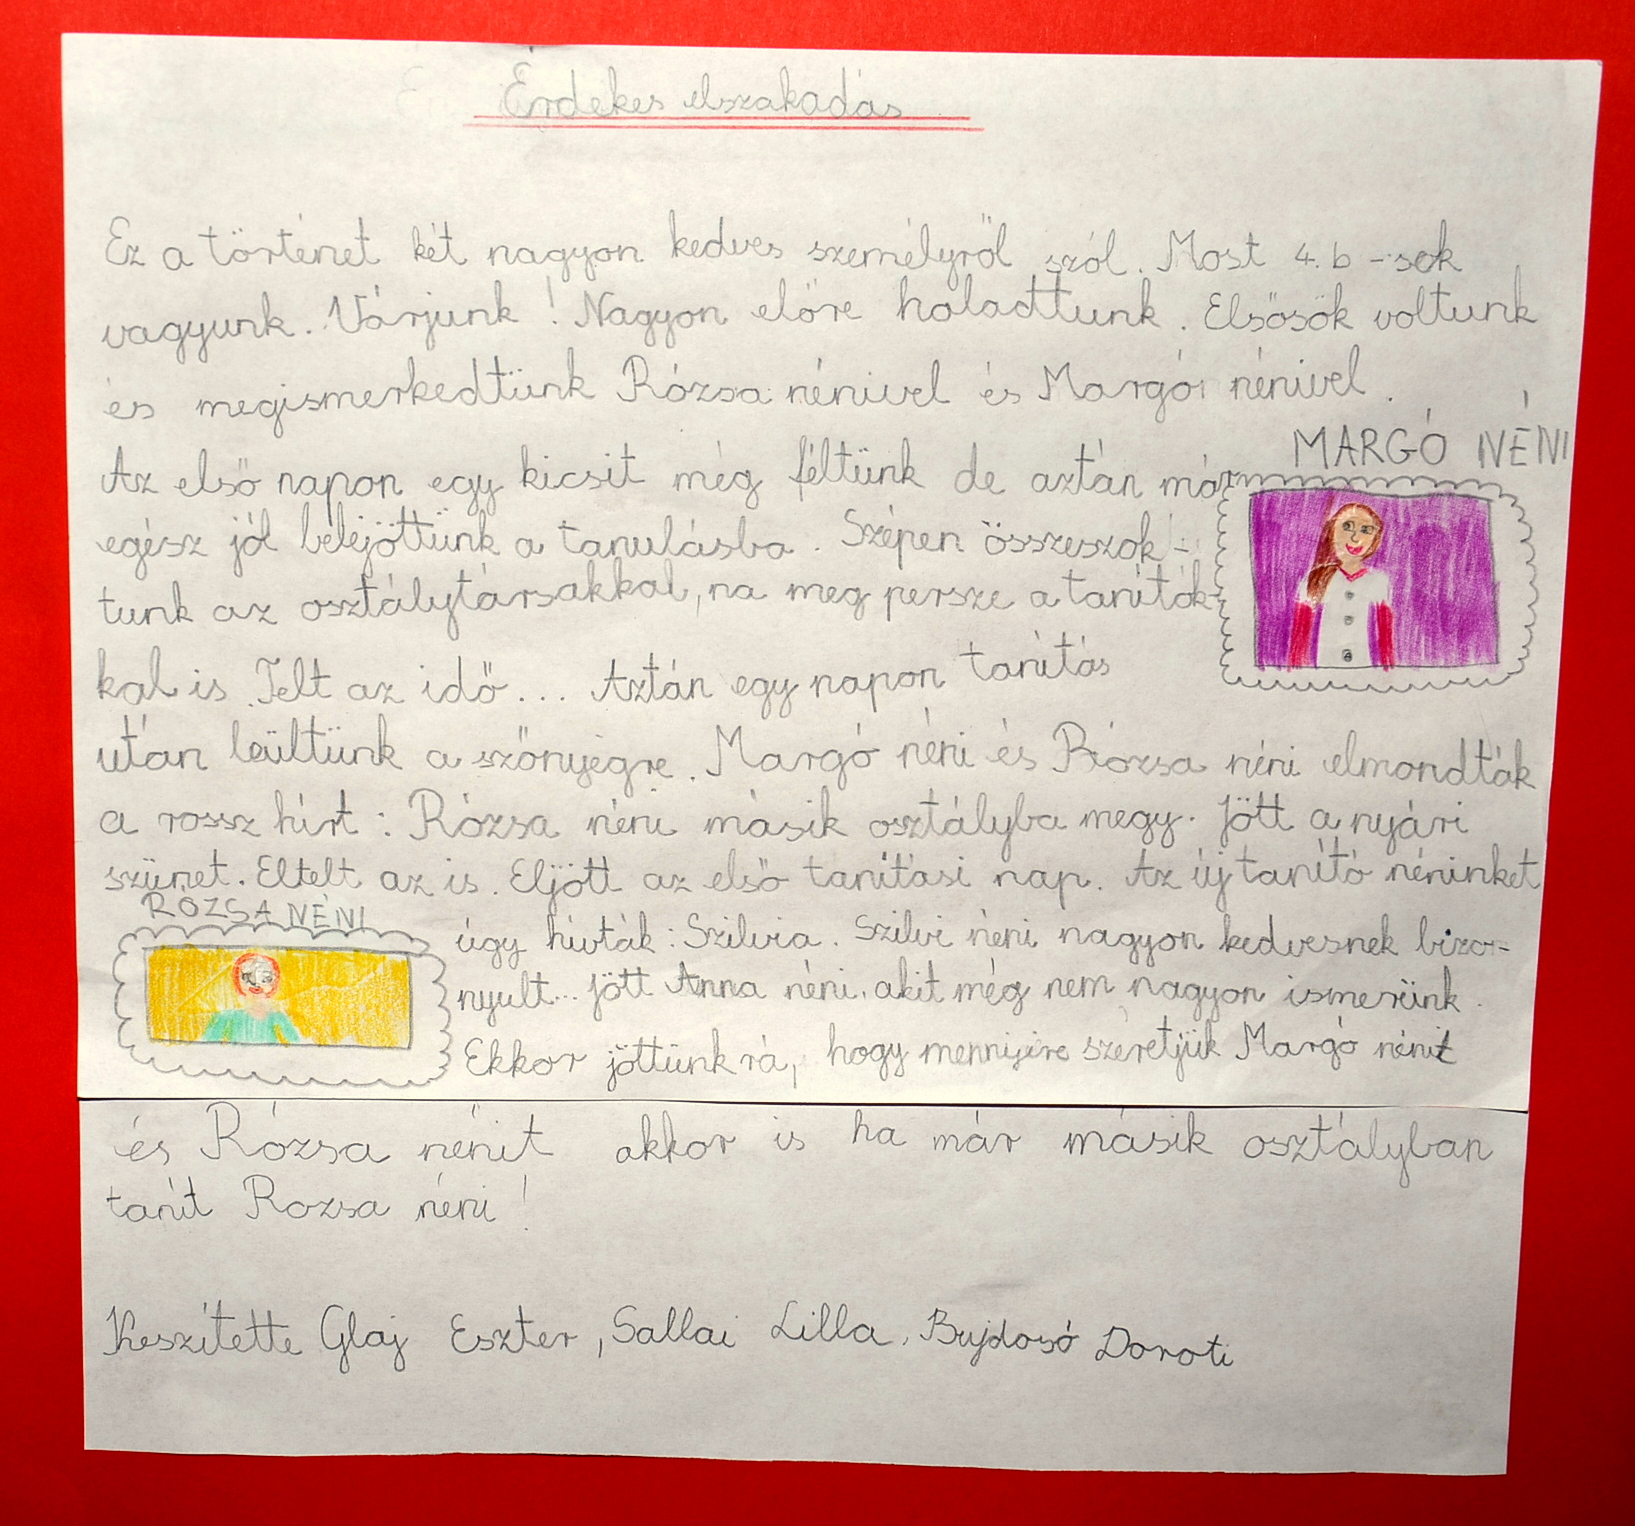 Érdekes elszakadás
Ez a történet két nagyon kedves személyről szól. Most 4. b-sek
vagyunk. Várjunk! Nagyon előre haladtunk. Elsősök voltunk
és megismerkedtünk Rózsa nénivel és Margó nénivel.
MARGÓ NÉNI
Az első napon egy kicsit még féltünk de aztán már
egész jól belejöttünk a tanulásba. Szépen összeszok-
tunk az osztálytársakkal, na meg persze a tanítók-
kal is. Telt az idő... Aztán egy napon tanítás
után leültünk a szőnyegre. Margó néni és Rózsa néni elmondták
a rossz hírt: Rózsa néni másik osztályba megy. Jött a nyári
szünet. Eltelt az is. Eljött az első tanítási nap. Az új tanító néninket
RÓZSA NÉNI
úgy hívták: Szilvia. Szilvi néni nagyon kedvesnek bizo-
nyult... Jött Anna néni, akit még nem nagyon ismerünk.
Ekkor jöttünk rá, hogy mennyire szeretjük Margó nénit
és Rózsa nénit akkor is ha már másik osztályban
tanít Rozsa néni!
Készítette Glaj Eszter, Sallai Lilla, Bujdosó Doroti